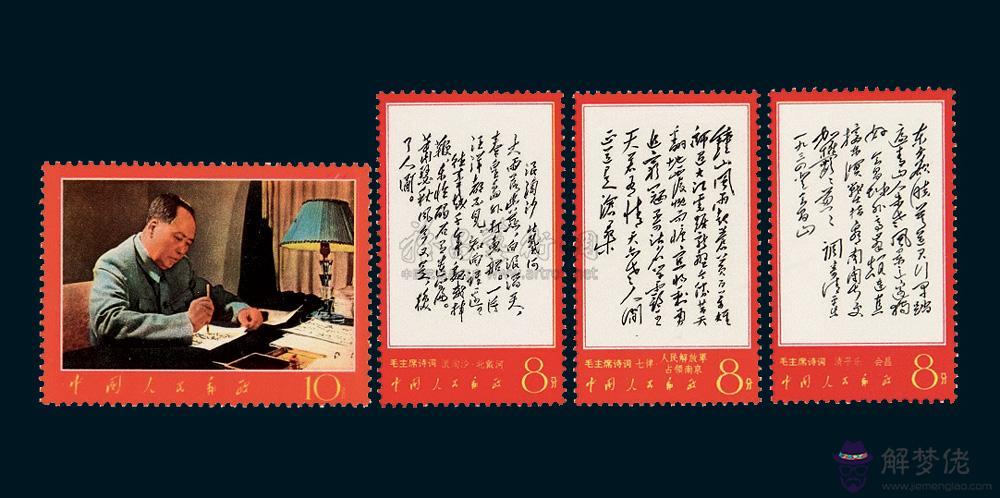 中国人民邮政
10分
浪淘沙 北戴河
大雨落幽燕，白浪滔天，
秦皇岛外打鱼船。一片
汪洋都不见，知向谁边？
往事越千年，魏武挥
鞭，东临碣石有遗篇。
萧瑟秋风今又是，换
了人间。
毛主席诗词 浪淘沙·北戴河
中国人民邮政
8分
钟山风雨起苍黄百万雄
师过大江虎踞龙盘今胜昔天
翻地覆慨而慷宜将剩勇
追穷寇不可沽名学霸王
天若有情天亦老人间
正道是沧桑
毛主席诗词 七律·人民解放军
占领南京
中国人民邮政
8分
东方欲晓莫道君行早踏
遍青山人未老风景这边独
好会昌城外高峰颠连直
接东溟战士指看南粤更
加郁郁葱葱 调寄清平乐
一九三四年
毛主席诗词 清平乐·会昌
中国人民邮政
8分
解梦佬
www.jiemenglao.com